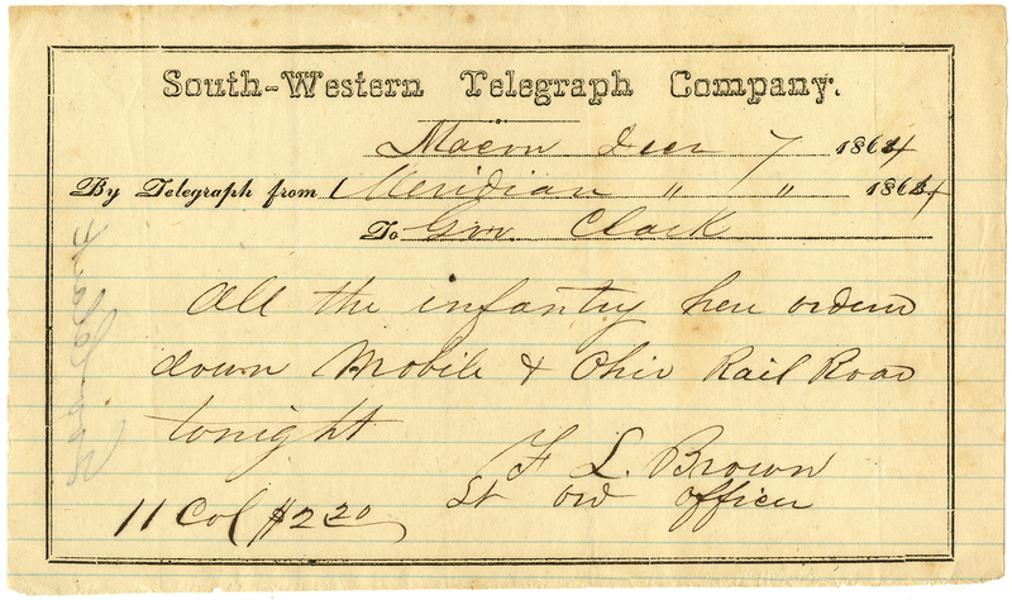 South-Western Telegraph Company.
Macon Decr 7 1864
By Telegraph from Meridian " " 1864
To Gov. Clark
All the infantry here orderd
down Mobile & Ohio Rail Road
tonight
F L. Brown
Lt ord officer
11 Col $2 20